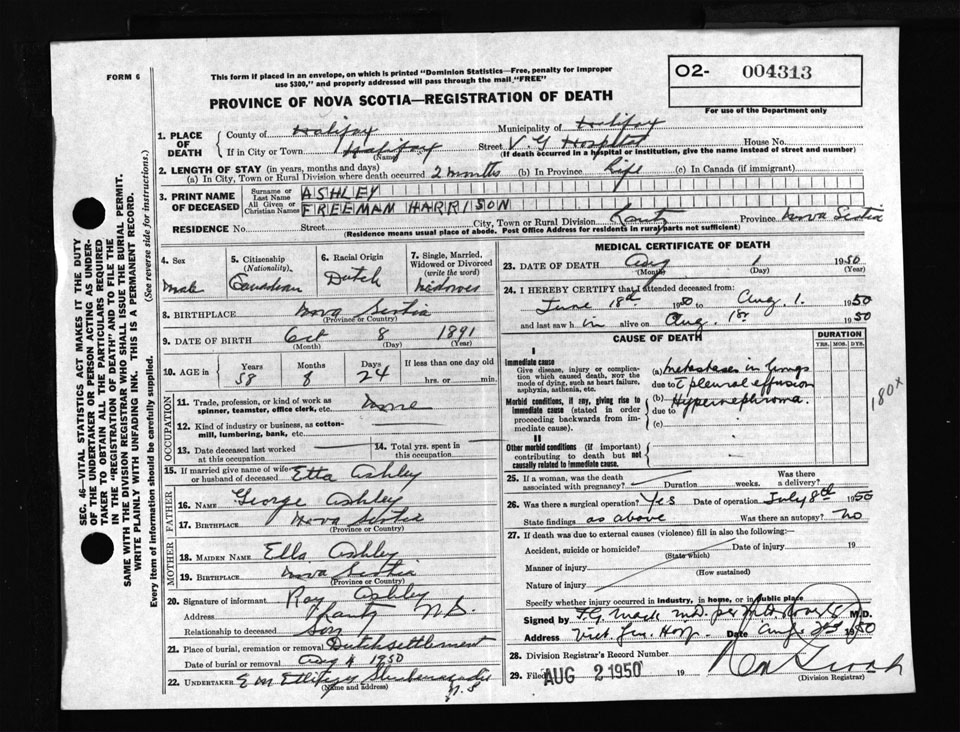 FORM 6
This form if placed in an envelope, on which is printed "Dominion Statistics—Free, penalty for improper
use $300," and properly addressed will pass through the mail "FREE"
O2- 004313
For use of the Department only
PROVINCE OF NOVA SCOTIA—REGISTRATION OF DEATH
SEC. 46—VITAL STATISTICS ACT MAKES IT THE DUTY
OF THE UNDERTAKER OR PERSON ACTING AS UNDER-
TAKER TO OBTAIN ALL THE PARTICULARS REQUIRED
IN THE "REGISTRATION OF DEATH" AND TO FILE THE
SAME WITH THE DIVISION REGISTRAR WHO SHALL ISSUE THE BURIAL PERMIT.
WRITE PLAINLY WITH UNFADING INK. THIS IS A PERMANENT RECORD.
Every item of information should be carefully supplied. (See reverse side for instructions.)
1. PLACE OF DEATH
County of Halifax Municipality of Halifax
If in City or Town Halifax (Name) Street V.G Hospital House No.
(If death occurred in a hospital or institution, give the name instead of street and number)
2. LENGTH OF STAY (in years, months and days)
(a) In City, Town or Rural Division where death occurred 2 months (b) In Province Life (c) In Canada (if immigrant)
3. PRINT NAME OF DECEASED
Surname or Last Name ASHLEY
All Given or Christian Names FREEMAN HARRISON
RESIDENCE No. Street City, Town or Rural Division Lantz Province Nova Scotia
(Residence means usual place of abode. Post Office Address for residents in rural parts not sufficient)
4. Sex male
5. Citizenship (Nationality) Canadian
6. Racial Origin Dutch
7. Single, Married, Widowed or Divorced (write the word) widower
8. BIRTHPLACE Nova Scotia
(Province or Country)
9. DATE OF BIRTH Oct 8 1891
(Month) (Day) (Year)
10. AGE in Years 58 Months 8 Days 24 If less than one day old hrs. or min.
OCCUPATION
11. Trade, profession, or kind of work as
spinner, teamster, office clerk, etc. none
12. Kind of industry or business, as cotton-
mill, lumbering, bank, etc.
13. Date deceased last worked at this occupation
14. Total yrs. spent in this occupation
15. If married give name of wife or husband of deceased Etta Ashley
FATHER
16. NAME George Ashley
17. BIRTHPLACE Nova Scotia
(Province or Country)
MOTHER
18. MAIDEN NAME Ella Ashley
19. BIRTHPLACE Nova Scotia
(Province or Country)
20. Signature of informant Ray Ashley
Address Lantz N.S.
Relationship to deceased son
21. Place of burial, cremation or removal Dutch settlement
Date of burial or removal Aug 4 1950
22. UNDERTAKER Shubenacadie
(Name and address) N.S
MEDICAL CERTIFICATE OF DEATH
23. DATE OF DEATH Aug 1 1950
(Month) (Day) (Year)
24. I HEREBY CERTIFY that I attended deceased from:
June 18th 1950 to Aug. 1. 1950
and last saw him alive on Aug. 1st 1950
CAUSE OF DEATH
DURATION
YRS. MOS. DYS.
I
Immediate cause
Give disease, injury or compli-
cation which caused death, NOT the
mode of dying, such as heart failure,
asphyxia, asthenia, etc.
(a) metastases in lungs
due to c pleural effusion
Morbid conditions, if any, giving rise to
immediate cause (stated in order
proceeding backwards from im-
mediate cause).
(b) Hypernephroma.
due to
(c)
180x
II
Other morbid conditions (if important)
contributing to death but not
causally related to immediate cause.
25. If a woman, was the death
associated with pregnancy? Duration weeks. Was there a delivery?
26. Was there a surgical operation? Yes Date of operation July 8th 1950
State findings as above Was there an autopsy? No
27. If death was due to external causes (violence) fill in also the following:—
Accident, suicide or homicide? (State which) Date of injury 19
Manner of injury (How sustained)
Nature of injury
Specify whether injury occurred in industry, in home, or in public place
Signed by M.D.
Address Vict. Gen. Hosp. Date Aug. 2nd 1950
28. Division Registrar's Record Number
29. Filed AUG 2 1950 19
(Division Registrar)